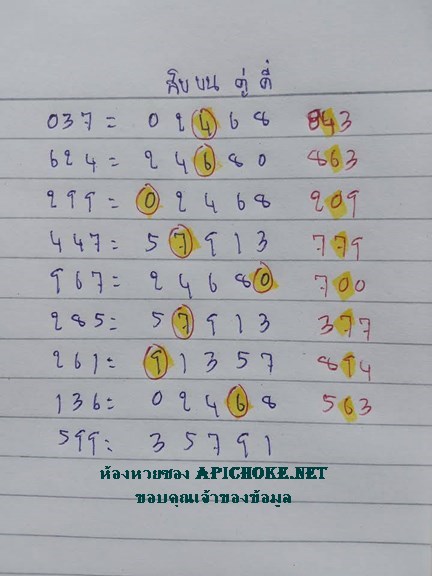 สิบบน คู่ คี่
037 = 0 2 4 6 8 843
624 = 2 4 6 8 0 863
299 = 0 2 4 6 8 209
447 = 5 7 9 1 3 779
967 = 2 4 6 8 0 700
285 = 5 7 9 1 3 377
261 = 9 1 3 5 7 894
136 = 0 2 4 6 8 563
599 = 3 5 7 9 1
ห้องหวยซอง APICHOKE.NET
ขอบคุณเจ้าของข้อมูล